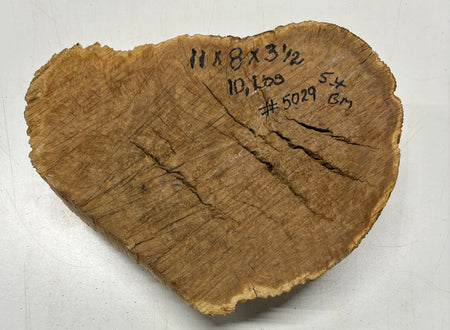 11 x 8 x 3½
10, Lbs 5.4
#5029 BM